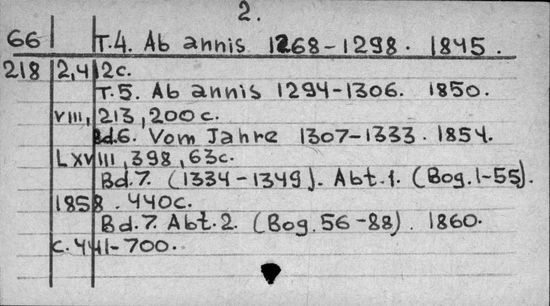 2.
66 T.4. Ab annis 1268-1298. 1845.
218 2,412c.
T.5. Ab annis 1294-1306. 1850.
VIII, 213, 200 c.
Bd.6. Vom Jahre 1307-1333. 1854.
LXVIII, 398, 63c.
Bd.7. (1334-1349). Abt.1. (Bog.1-55).
1858. 440c.
Bd.7. Abt.2. (Bog.56-88). 1860.
c.441-700.